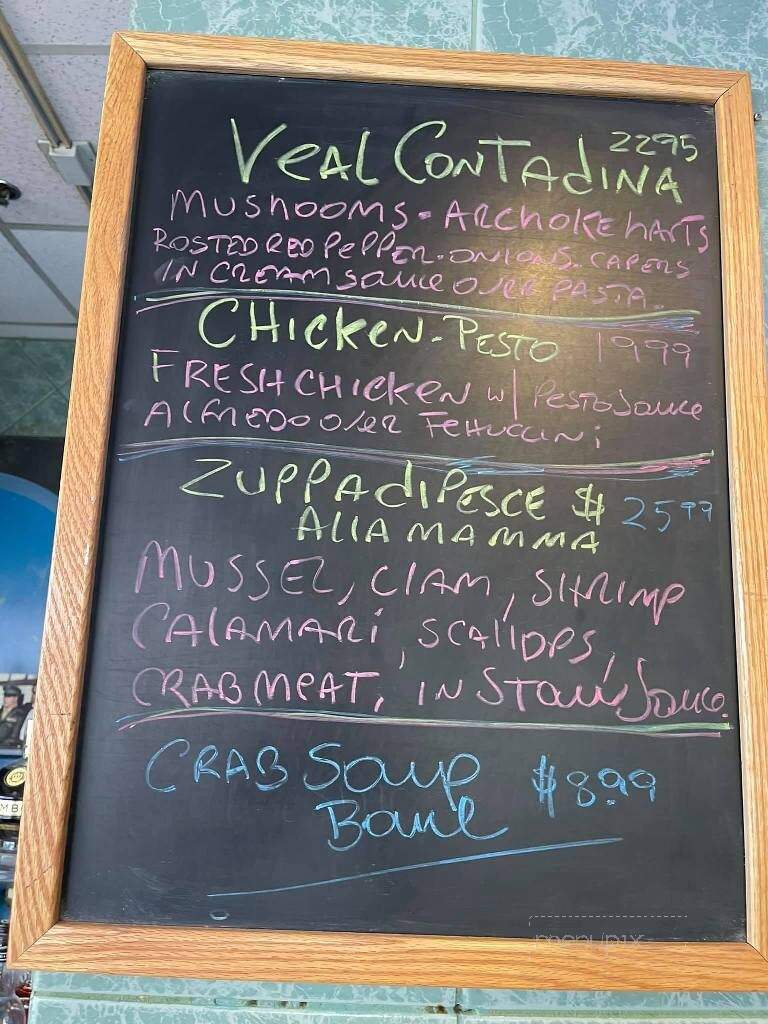 VEAL CONTADINA 2295
MUSHOOMS - ARCHOKE HARTS
ROSTED RED PEPPER - ONIONS - CAPERS
IN CREAM SAUCE OVER PASTA.
CHICKEN - PESTO 1999
FRESH CHICKEN W/ PESTO SAUCE
AlFREDO OVER FEHUCCINI
ZUPPA di PESCE $ 2599
AllA MAMMA
MUSSEL, ClAM, SHRIMP
CALAMARI, SCAllOPS,
CRABMEAT, IN Sauce.
CRAB SOUP $8.99
menupix